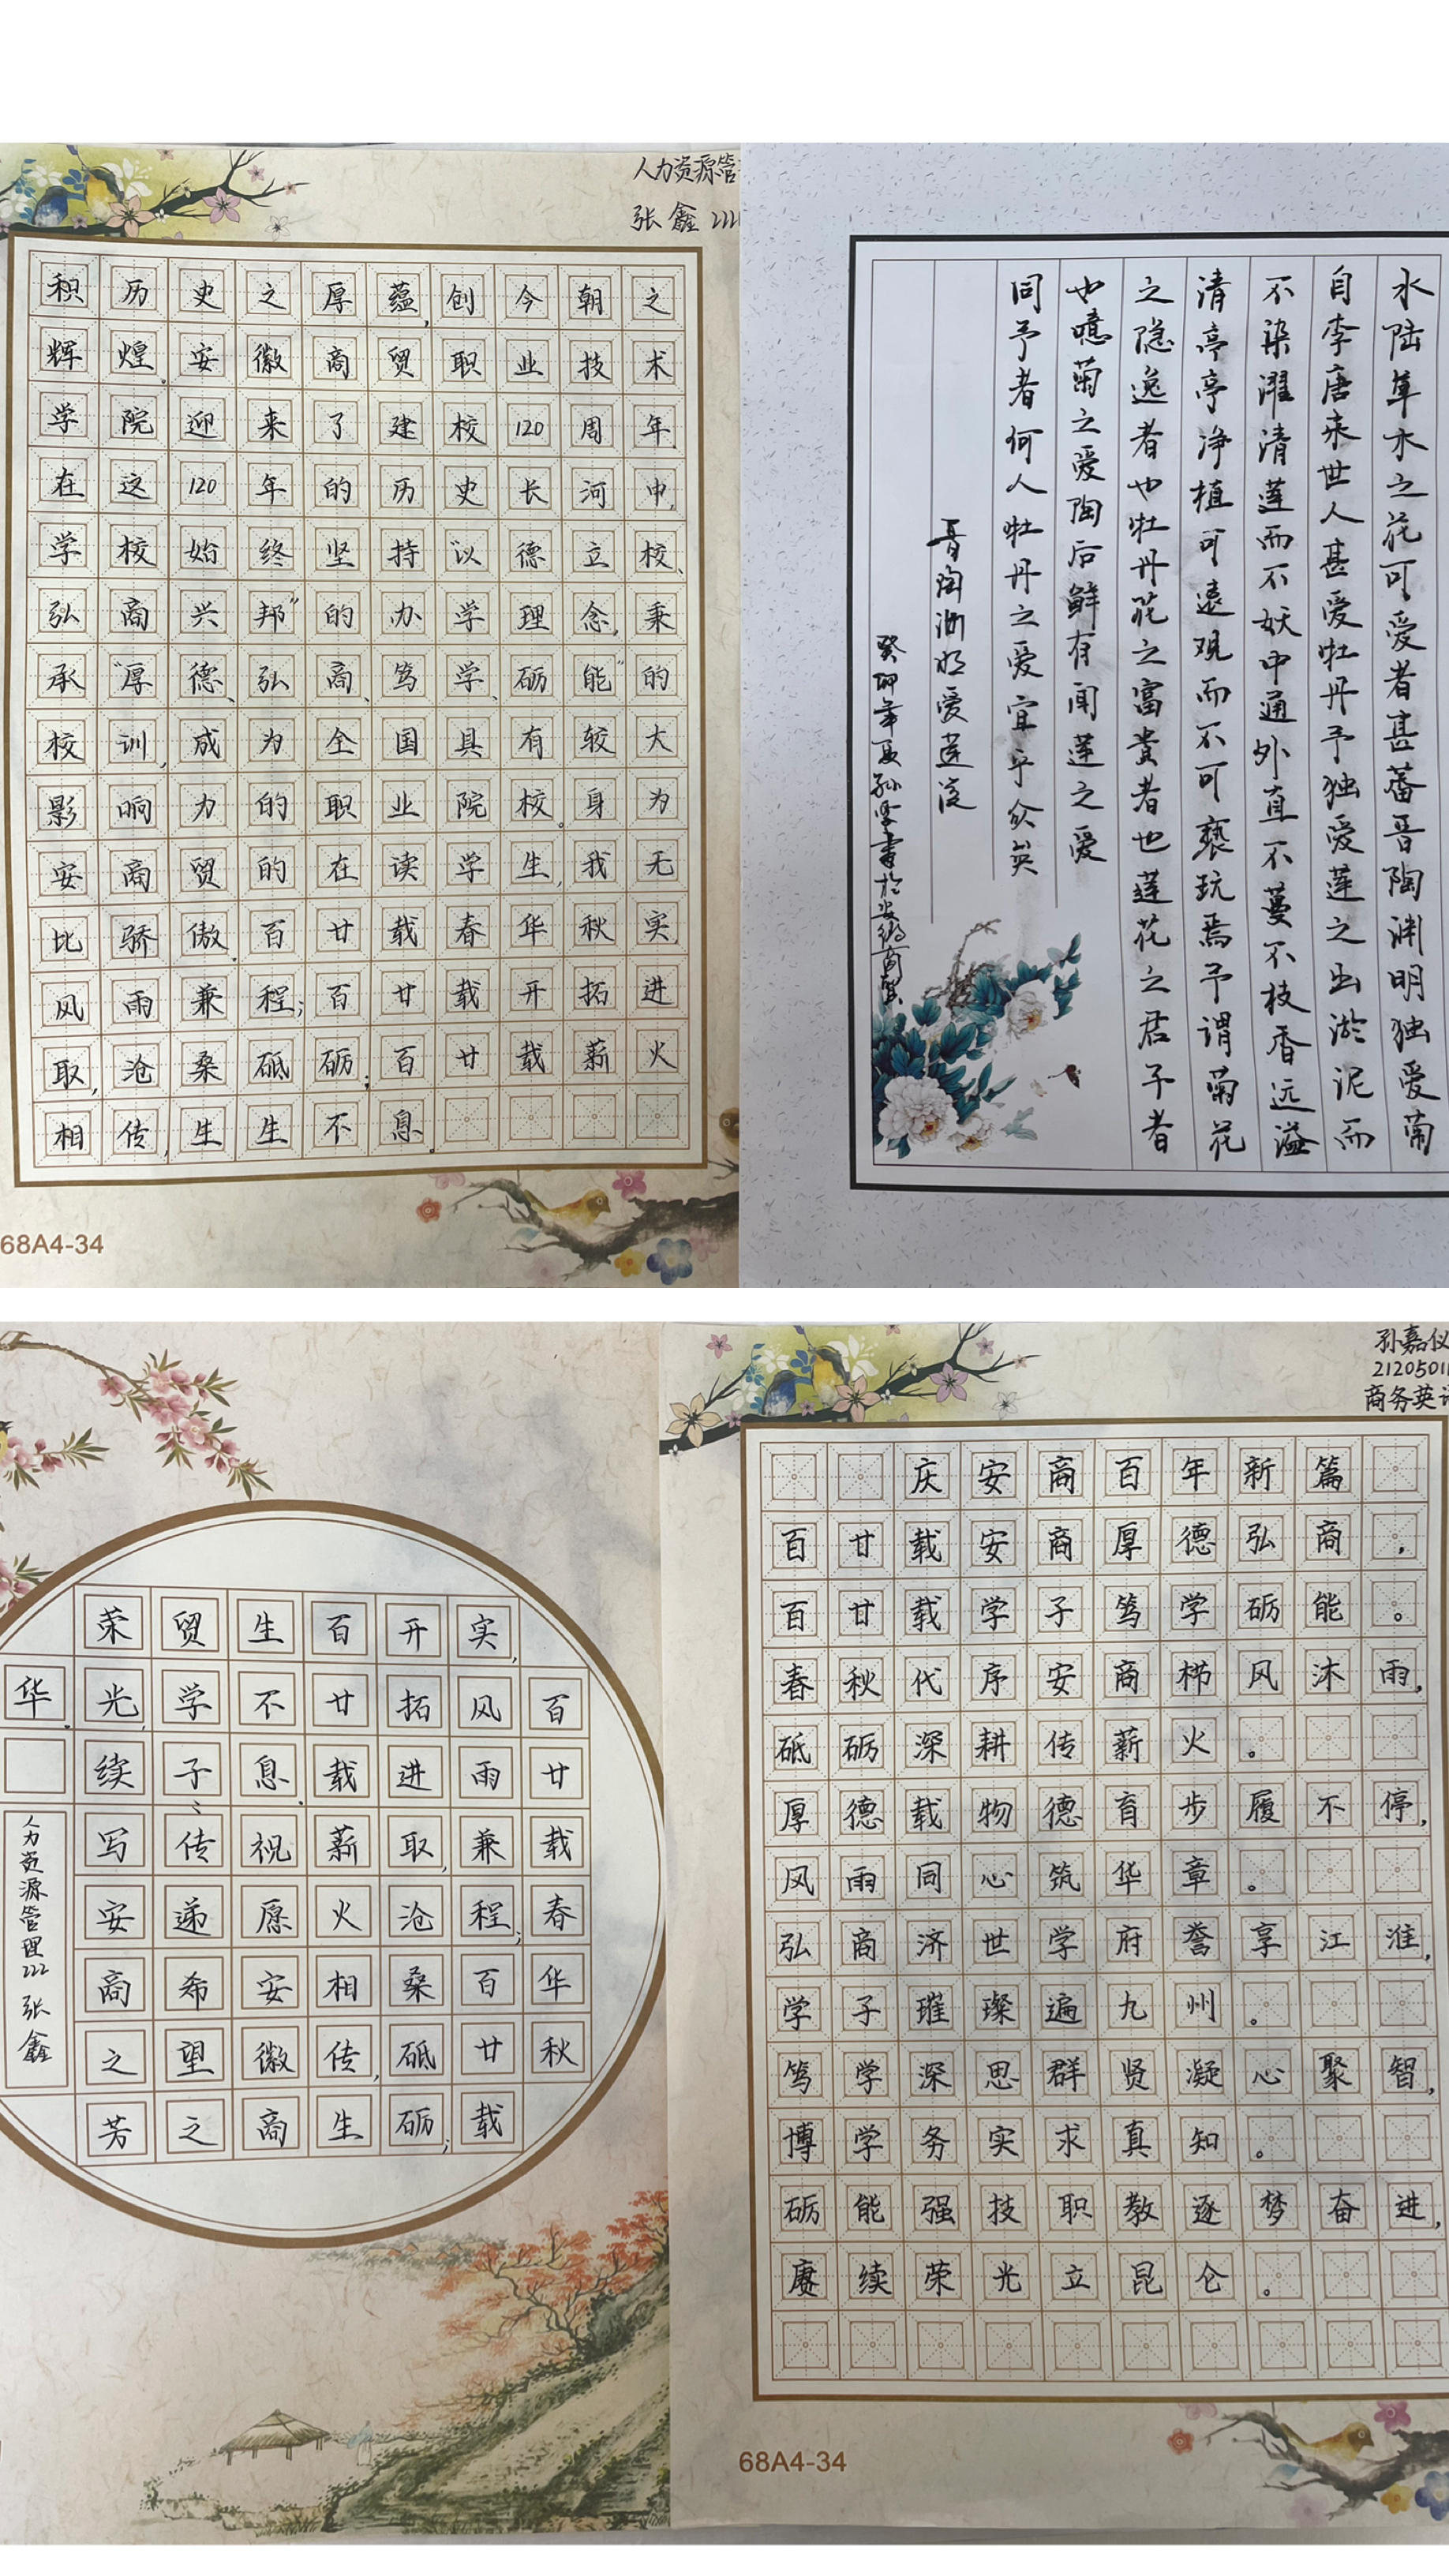 人力资源管
张鑫 222
积历史之厚蕴,创今朝之
辉煌。安徽商贸职业技术
学院迎来了建校120周年,
在这120年的历史长河中,
学校始终坚持“以德立校、
弘商兴邦”的办学理念,秉
承“厚德、弘商、笃学、砺能”的
校训,成为全国具有较大
影响力的职业院校。身为
安商贸的在读学生,我无
比骄傲。百廿载春华秋实,
风雨兼程;百廿载开拓进
取,沧桑砥砺;百廿载薪火
相传,生生不息。
68A4-34
水陆草木之花可爱者甚蕃晋陶渊明独爱菊
自李唐来世人甚爱牡丹予独爱莲之出淤泥而
不染濯清莲而不妖中通外直不蔓不枝香远溢
清亭亭净植可远观而不可亵玩焉予谓菊花
之隐逸者也牡丹花之富贵者也莲花之君子者
也噫菊之爱陶后鲜有闻莲之爱
同予者何人牡丹之爱宜乎众矣
晋陶渊明爱莲说
癸卯年夏孙学书於安徽商贸
百廿载春华秋
实,风雨兼程;百廿载
开拓进取,沧桑砥砺;
百廿载薪火相传,生
生不息。祝愿安徽商
贸学子、传递希望之
荣光,续写安商之芳
华。
人力资源管理222 张鑫
孙嘉仪
21205011
商务英语
庆安商百年新篇
百廿载安商厚德弘商,
百廿载学子笃学砺能。
春秋代序安商栉风沐雨,
砥砺深耕传薪火。
厚德载物德育步履不停,
风雨同心筑华章。
弘商济世学府誉享江淮,
学子璀璨遍九州。
笃学深思群贤凝心聚智,
博学务实求真知。
砺能强技职教逐梦奋进,
赓续荣光立昆仑。
68A4-34